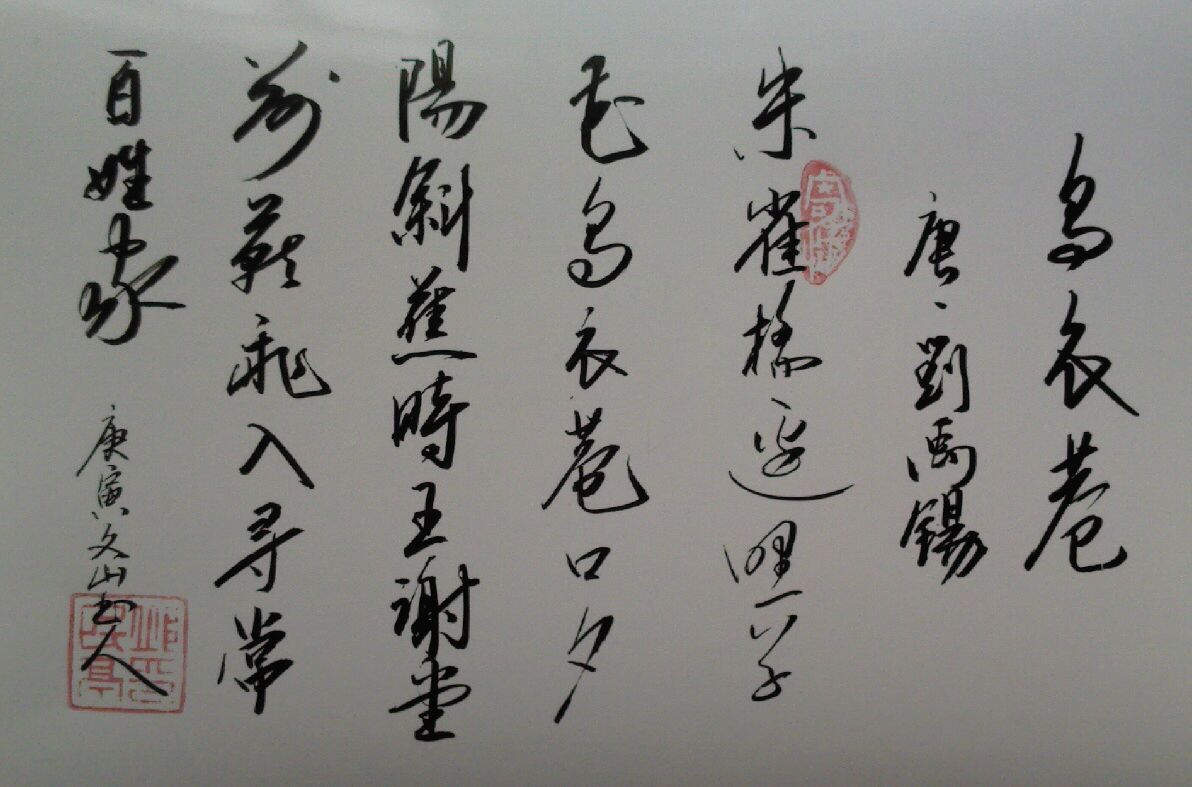 烏衣巷
唐、劉禹錫
朱雀橋邊野草
花烏衣巷口夕
陽斜舊時王謝堂
前燕飛入寻常
百姓家
庚寅文山書人